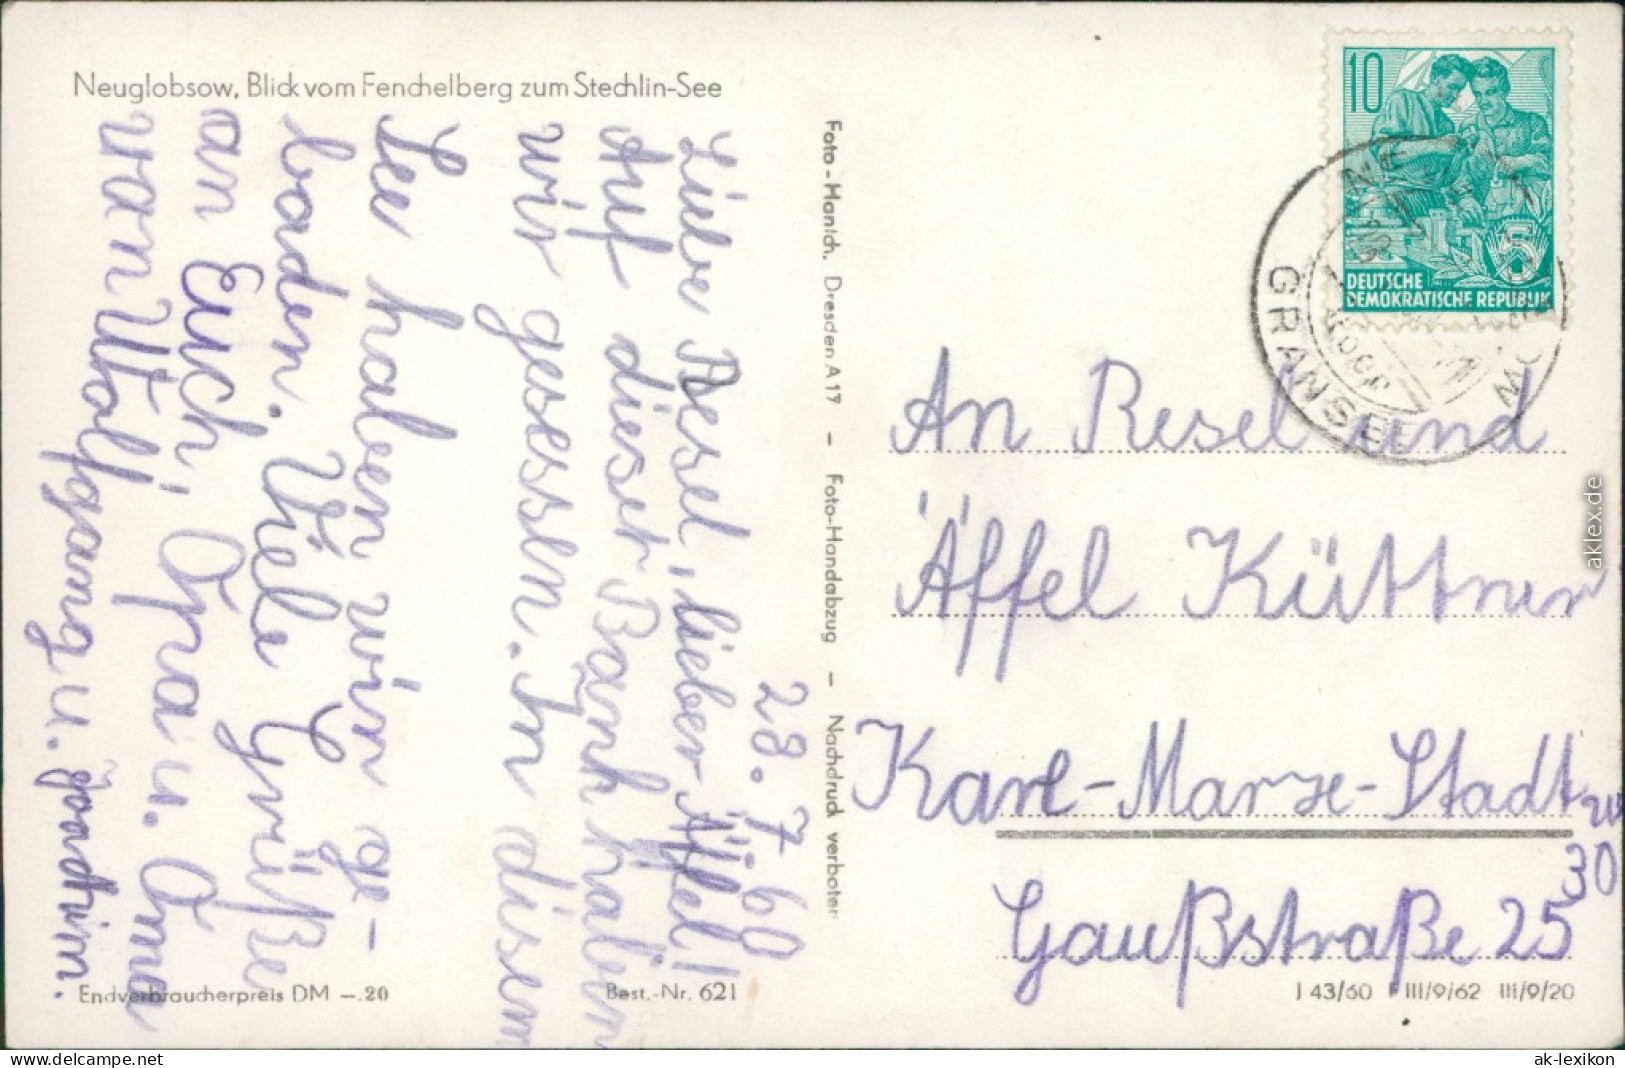 Neuglobsow, Blick vom Fenchelberg zum Stechlin-See
28. 7. 60
Liebe Resel, lieber Äffel!
Auf dieser Bank haben
wir gesessen. In diesem
See haben wir ge-
baden. Viele Grüße
an Euch, Opa u. Oma
von Wolfgang u. Joachim.
Endverbraucherpreis DM –.20
Best.-Nr. 621
Foto-Hanich, Dresden A 17 – Foto-Handabzug – Nachdruck verboten
10
DEUTSCHE
DEMOKRATISCHE REPUBLIK
5
GRANSEE
An Resel und
Äffel Küttner
Karl-Marx-Stadt
30
Gaußstraße 25
J 43/60 F III/9/62 III/9/20
aklex.de
www.delcampe.net
ak-lexikon